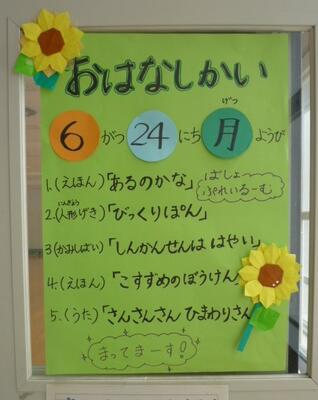 おはなしかい
6がつ24にち月ようび
げつ
ばしょ
ぷれいるーむ
1.(えほん)「あるのかな」
2.(人形げき)「びっくりぽん」
にんぎょう
3(かみしばい)「しんかんせんは はやい」
4.(えほん)「こすずめのぼうけん」
5.(うた)「さんさんさん ひまわりさん
まってまーす!